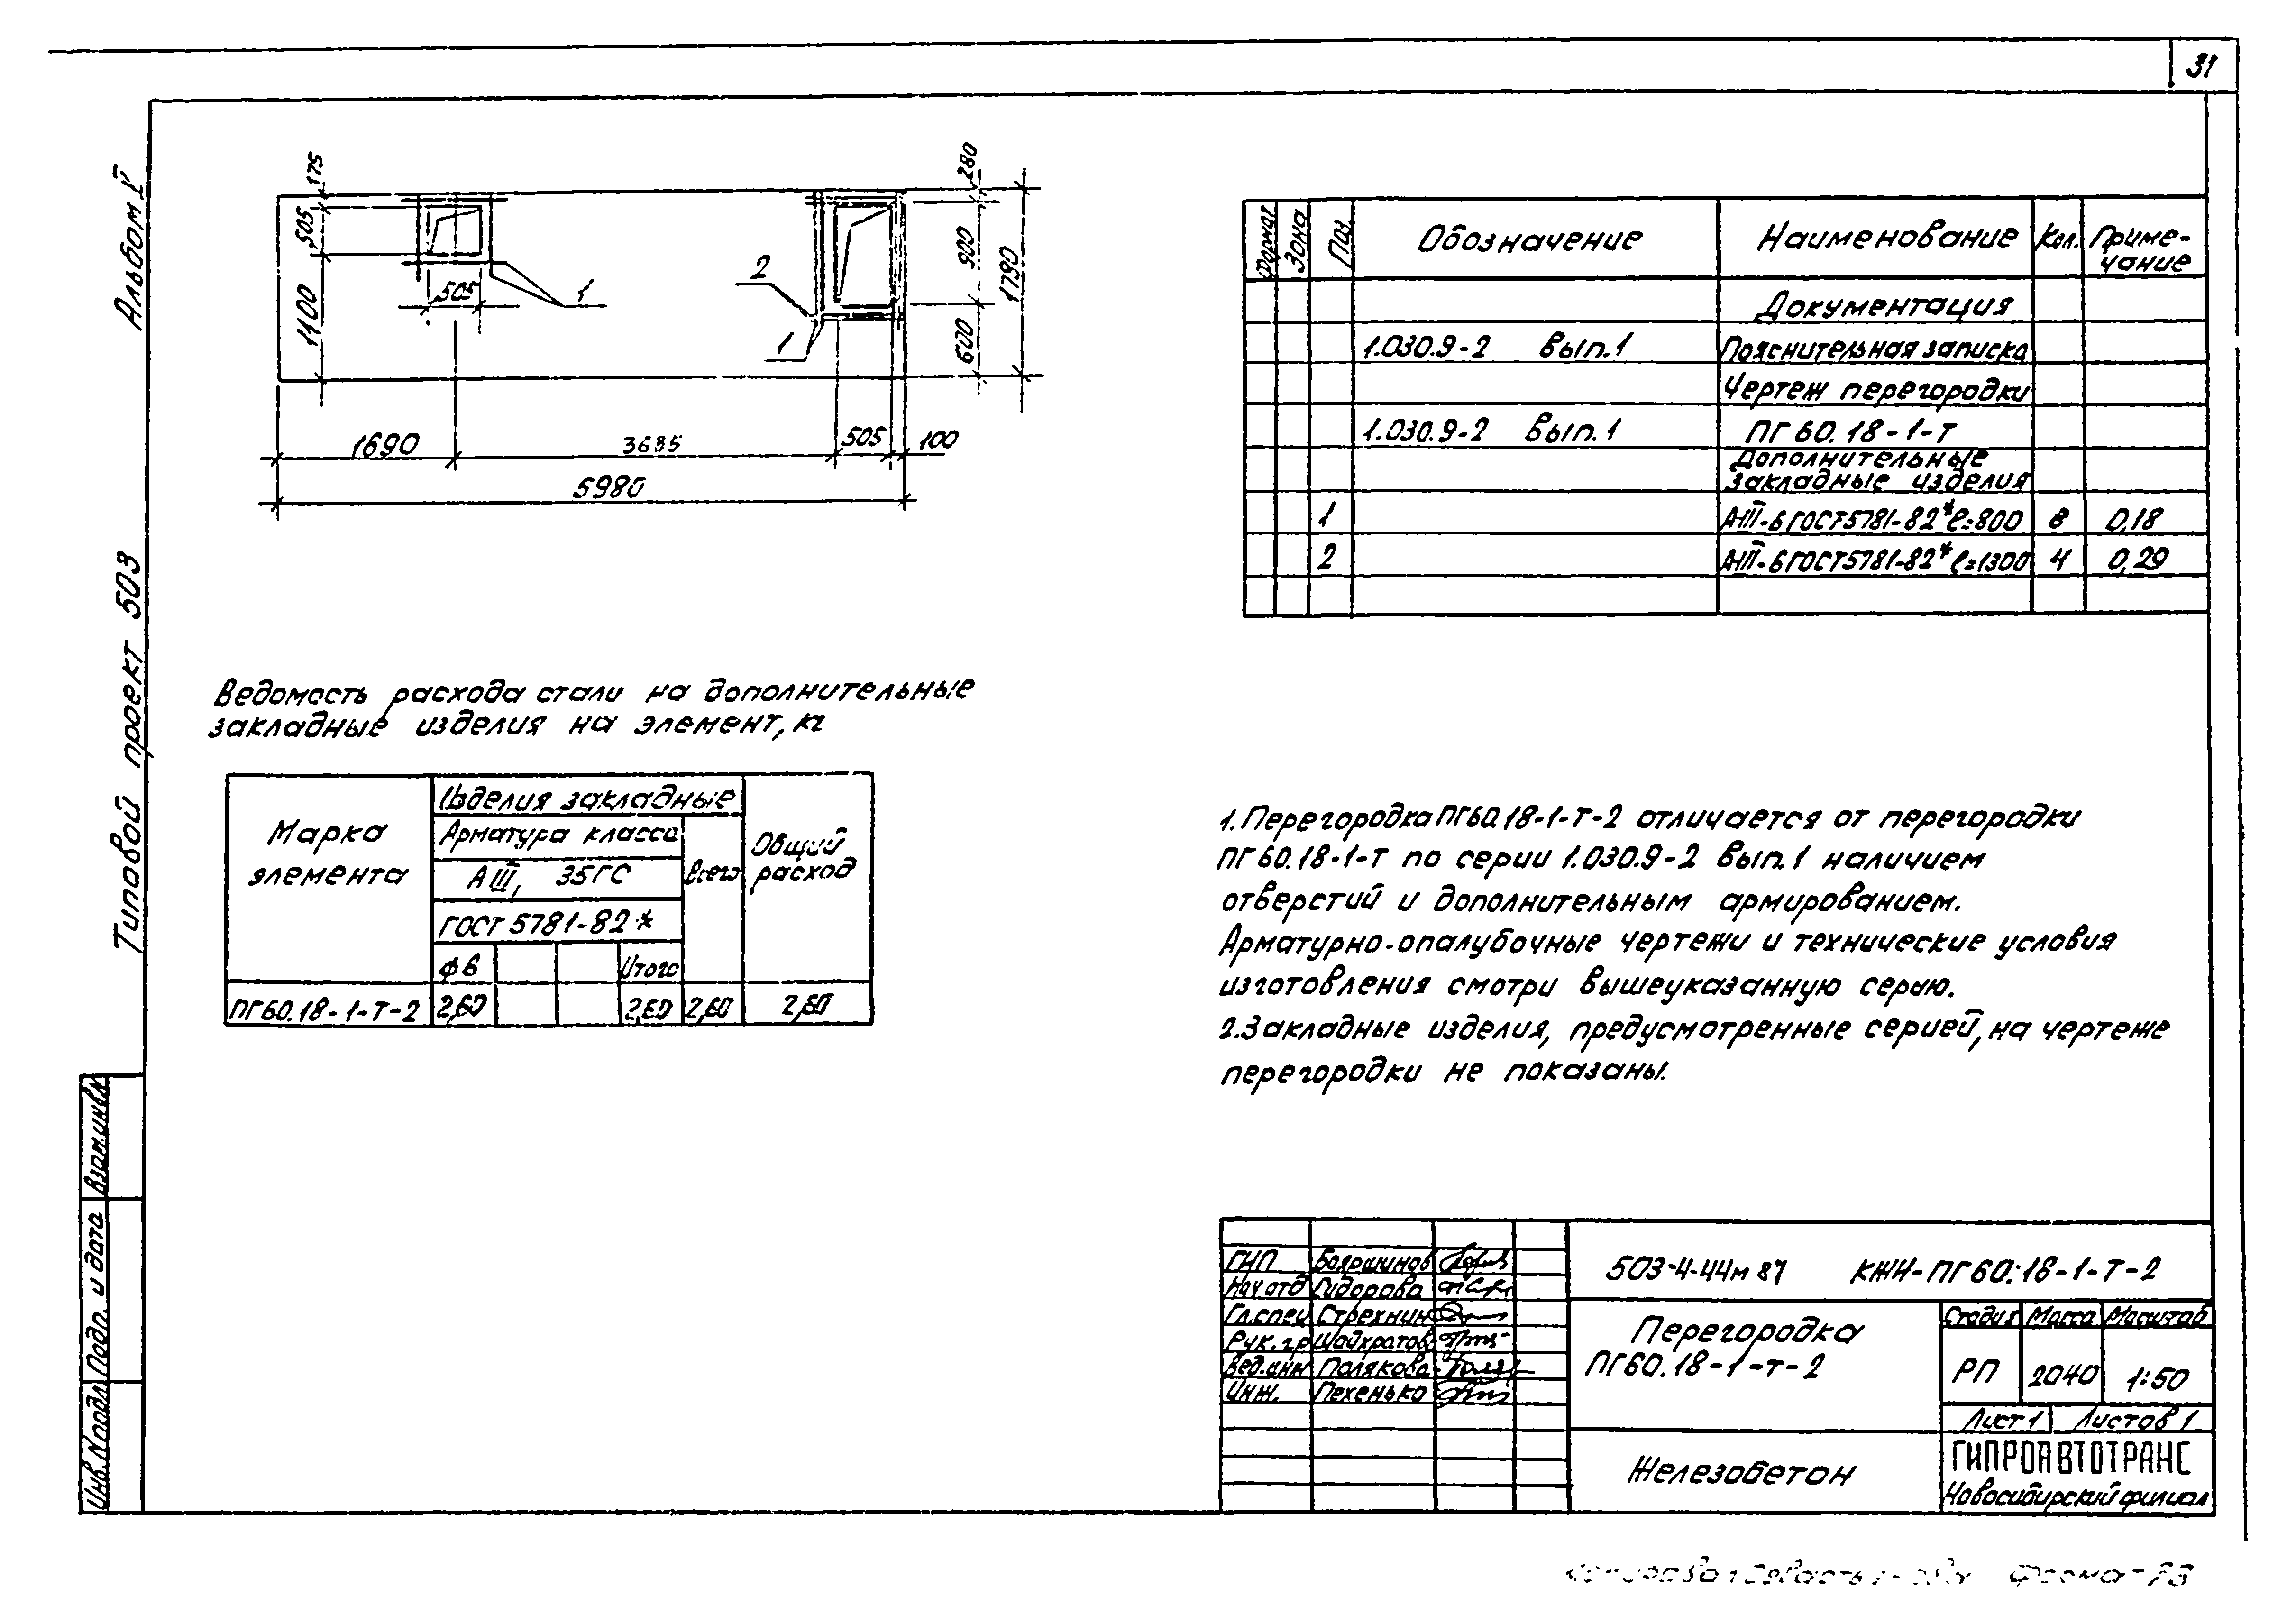 31
Альбом V
Типовой проект 503
175
505
1100
505
1
2
1
280
900
600
1790
1690
3685
505
100
5980
Формат
Зона
Поз.
Обозначение
Наименование
Кол.
Приме-
чание
Документация
1.030.9-2 Вып.1 Пояснительная записка
Чертеж перегородки
1.030.9-2 Вып.1 ПГ 60.18-1-Т
Дополнительные
закладные изделия
1 А-III-6 ГОСТ 5781-82* ℓ=800 8 0,18
2 А-III-6 ГОСТ 5781-82* ℓ=1300 4 0,29
Ведомость расхода стали на дополнительные
закладные изделия на элемент, кг
Марка
элемента
Изделия закладные
Арматура класса
А III, 35ГС
ГОСТ 5781-82*
ф6
Итого
Всего
Общий
расход
ПГ60.18-1-Т-2 2,60 2,60 2,60 2,60
1. Перегородка ПГ60.18-1-Т-2 отличается от перегородки
ПГ60.18-1-Т по серии 1.030.9-2 Вып.1 наличием
отверстий и дополнительным армированием.
Арматурно-опалубочные чертежи и технические условия
изготовления смотри вышеуказанную серию.
2. Закладные изделия, предусмотренные серией, на чертеже
перегородки не показаны.
Взам.инв.N
Подп. и дата
Инв.N подл
ГИП Бояршинов
Нач отд Сидорова
Гл.спец Стрехнин
Рук.гр Шайхратов
Вед.инж Полякова
Инж. Пехенько
503-4-44м 87 КЖИ-ПГ60.18-1-Т-2
Перегородка
ПГ60.18-1-Т-2
Стадия Масса Масштаб
РП 2040 1:50
Лист 1 Листов 1
Железобетон
ГИПРОАВТОТРАНС
Новосибирский филиал
Формат А3